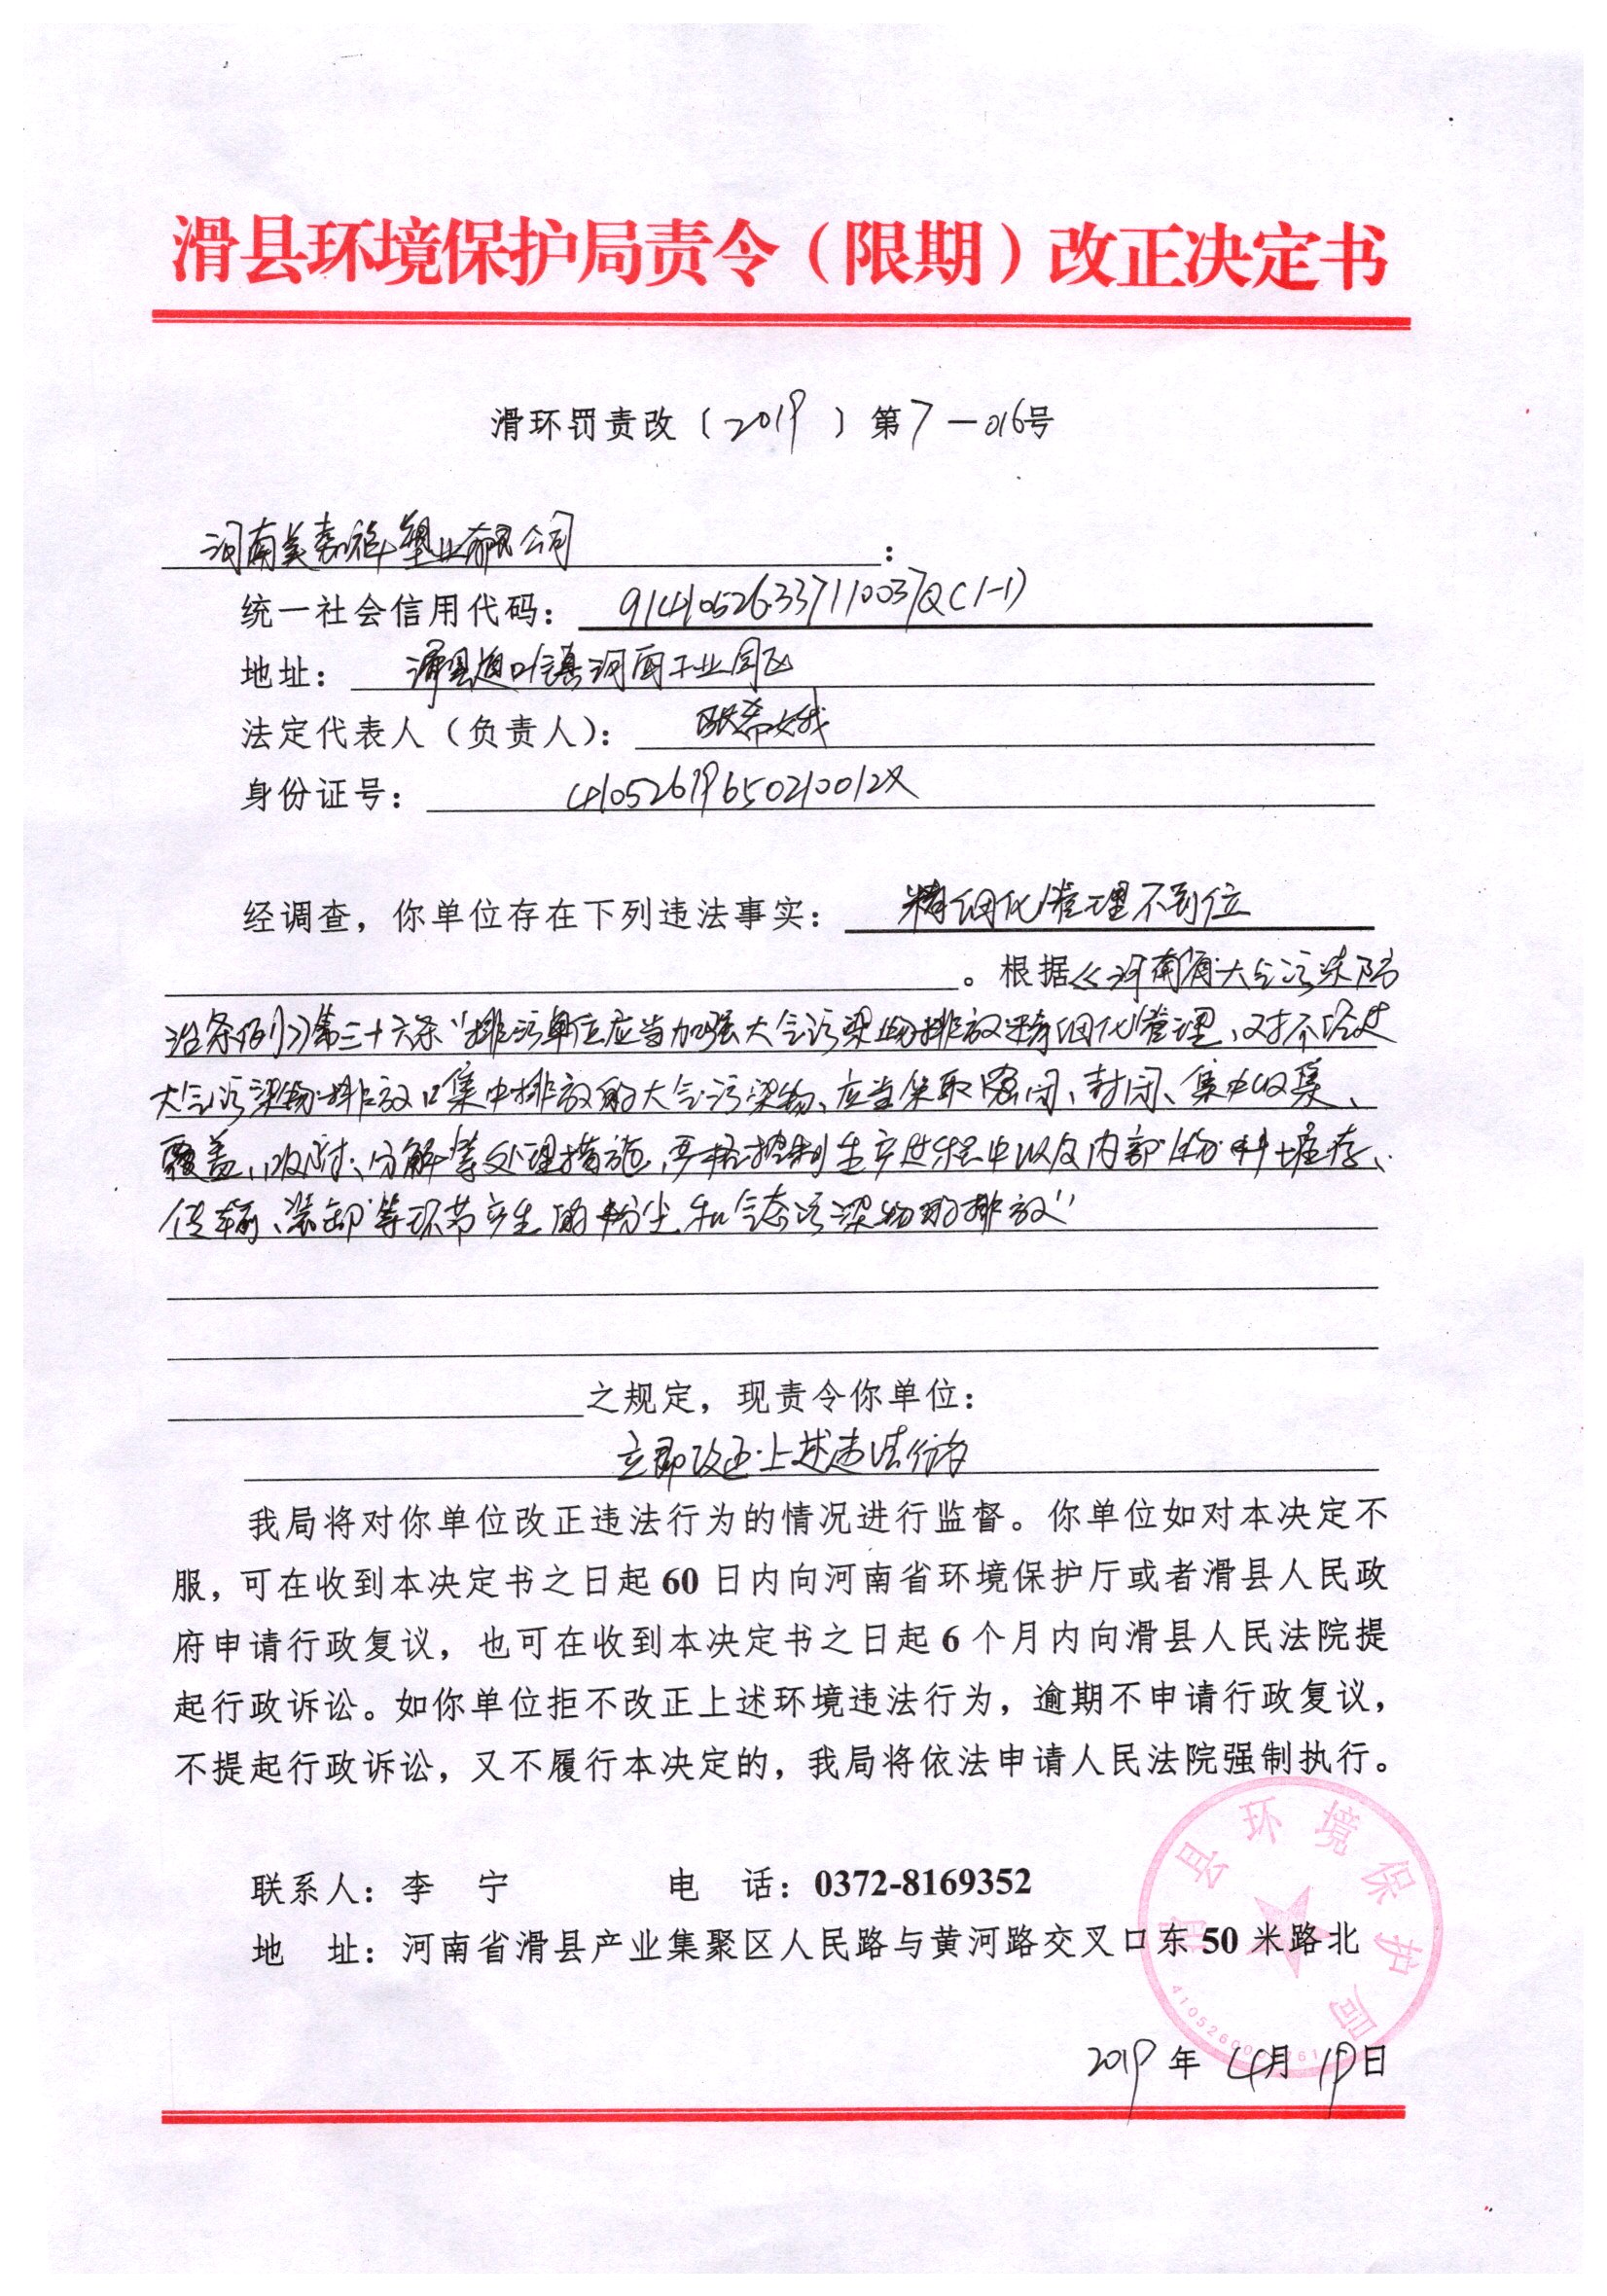 滑县环境保护局责令（限期）改正决定书
滑环罚责改〔2019〕第7-016号
河南美嘉福塑业有限公司：
统一社会信用代码：914105263371110037Q(1-1)
地址：滑县道口镇河西工业园区
法定代表人（负责人）：
身份证号：41052619650210012X
经调查，你单位存在下列违法事实：精细化管理不到位
。根据《河南省大气污染防
治条例》第三十六条“排污单位应当加强大气污染物排放精细化管理，对不经过
大气污染物排放口集中排放的大气污染物，应当采取密闭、封闭、集中收集、
覆盖、吸附、分解等处理措施，严格控制生产过程中以及内部物料堆存、
传输、装卸等环节产生的粉尘和气态污染物的排放”
之规定，现责令你单位：
立即改正上述违法行为
我局将对你单位改正违法行为的情况进行监督。你单位如对本决定不
服，可在收到本决定书之日起60日内向河南省环境保护厅或者滑县人民政
府申请行政复议，也可在收到本决定书之日起6个月内向滑县人民法院提
起行政诉讼。如你单位拒不改正上述环境违法行为，逾期不申请行政复议，
不提起行政诉讼，又不履行本决定的，我局将依法申请人民法院强制执行。
联系人：李 宁 电 话：0372-8169352
地 址：河南省滑县产业集聚区人民路与黄河路交叉口东50米路北
滑县环境保护局
2019年4月19日